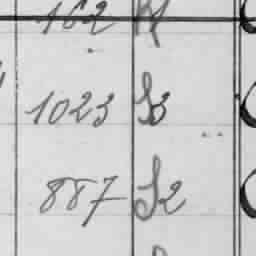 162
1023 S3
887 S2